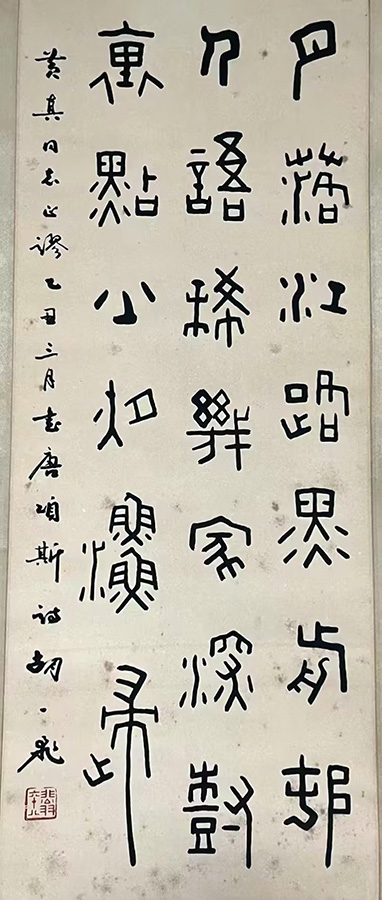 月落江路黑前村
人語稀幾家深樹
裏點火夜漁歸
黄真同志正謬乙丑三月書唐項斯詩胡一飛